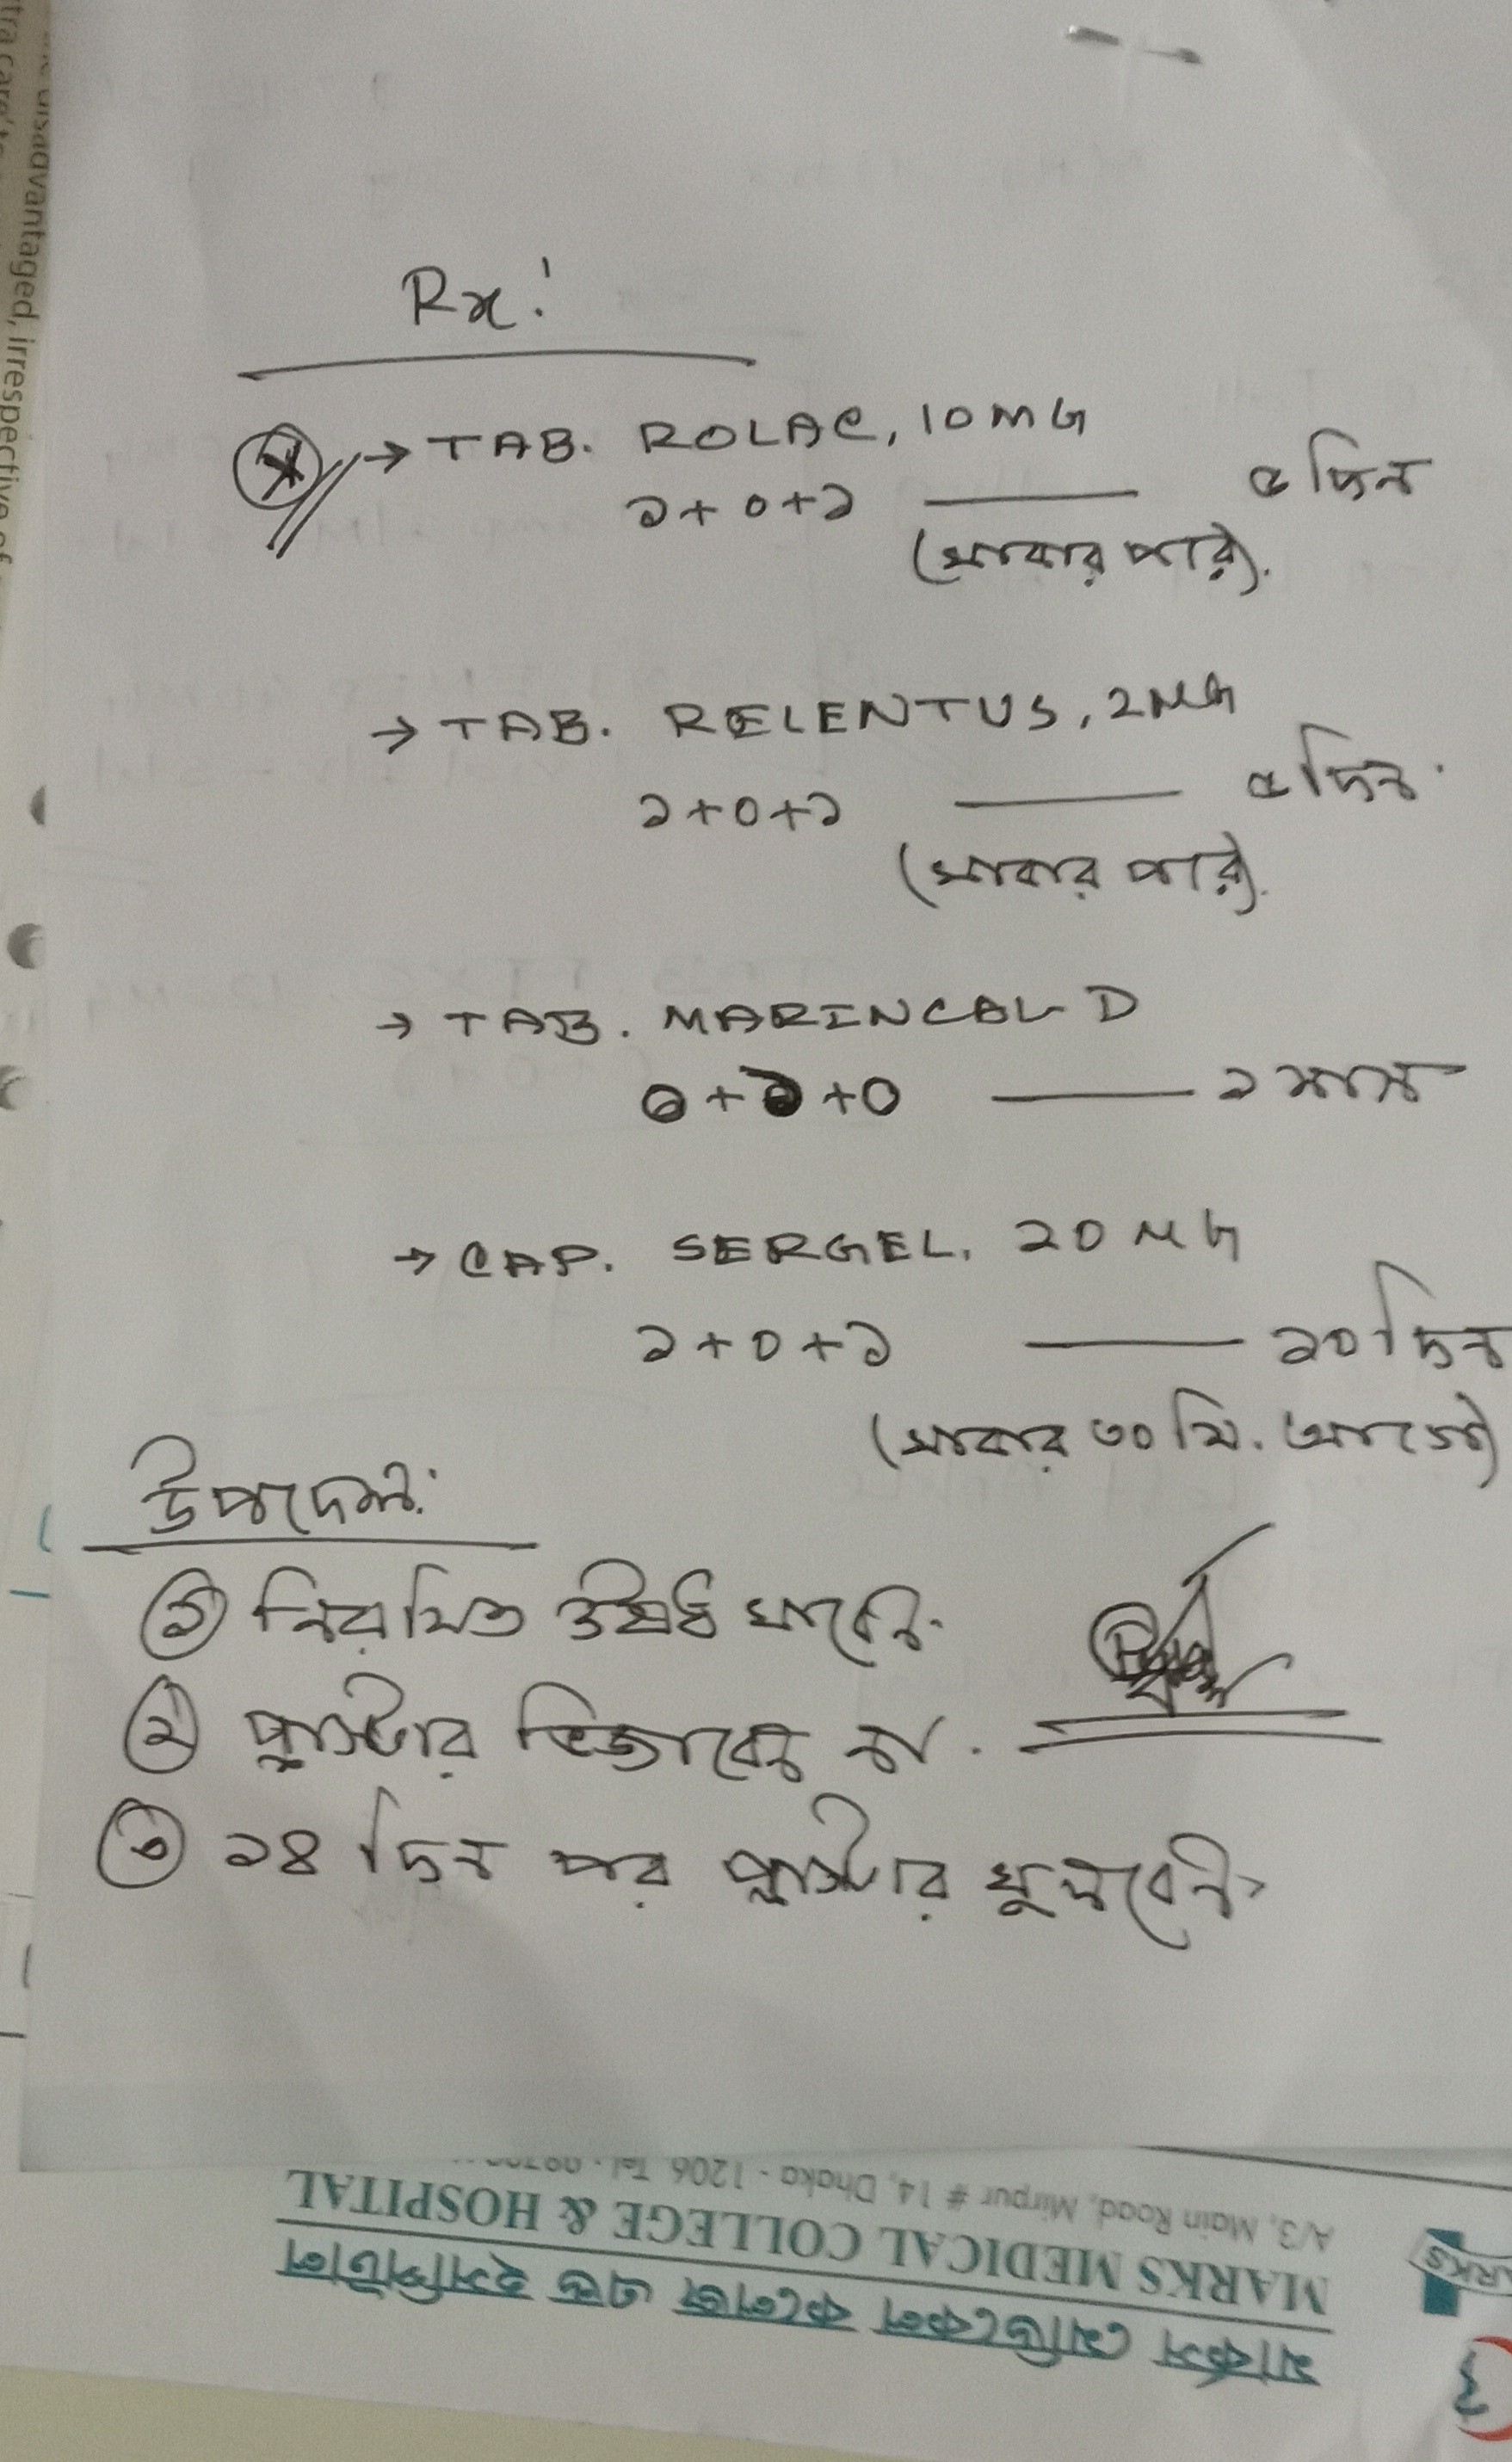 Rx:
→ TAB. ROLAC, 10 MG
১+০+১ —— ৫ দিন
(খাবার পরে).
→ TAB. RELENTUS, 2MG
১+০+১ —— ৫ দিন.
(খাবার পরে).
→ TAB. MARINCAL D
০+১+০ —— ১ মাস
→ CAP. SERGEL. 20 MG
১+০+১ —— ১০ দিন
(খাবার ৩০ মি. আগে)
উপদেশ:
① নিয়মিত ঔষধ খাবেন.
② প্লাস্টার ভিজাবেন না.
③ ১৪ দিন পর প্লাস্টার খুলবেন.
মার্কস মেডিকেল কলেজ এন্ড হসপিটাল
MARKS MEDICAL COLLEGE & HOSPITAL
A/3, Main Road, Mirpur # 14, Dhaka - 1206 Tel:
disadvantaged, irrespective of